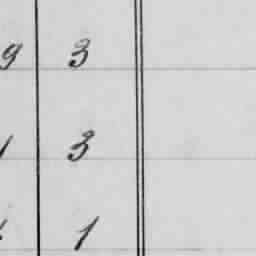 9 3
1 3
1